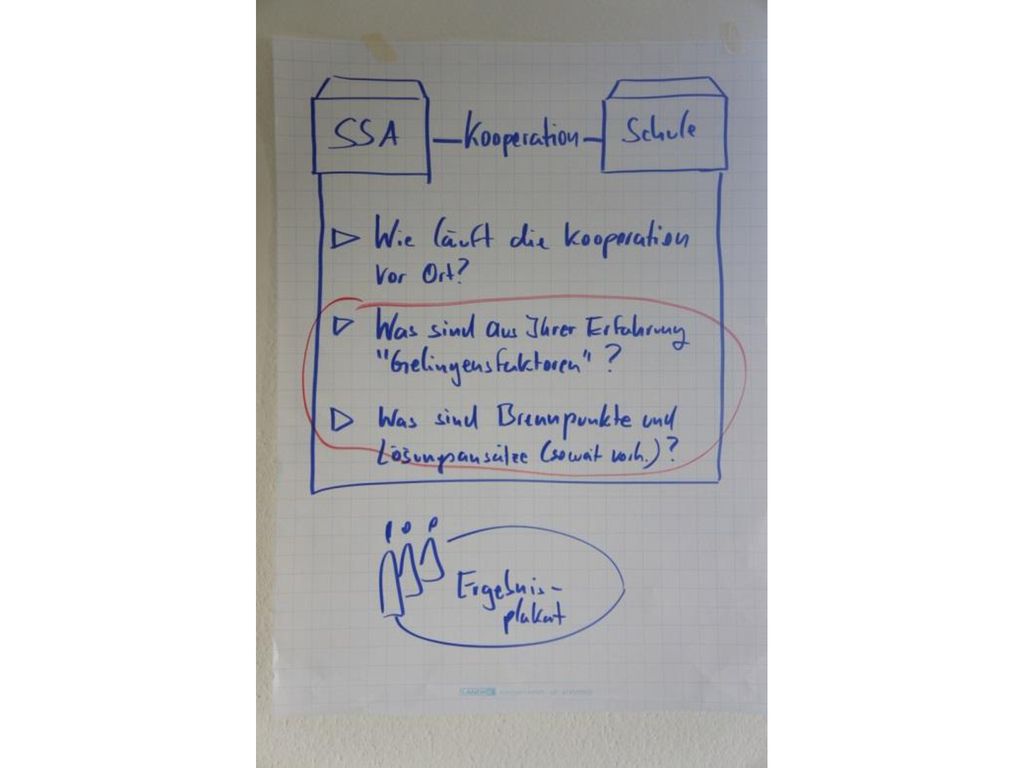 SSA – Kooperation – Schule
▷ Wie läuft die Kooperation
vor Ort?
▷ Was sind aus Ihrer Erfahrung
"Gelingensfaktoren"?
▷ Was sind Brennpunkte und
Lösungsansätze (soweit vorh.)?
Ergebnis-
plakat